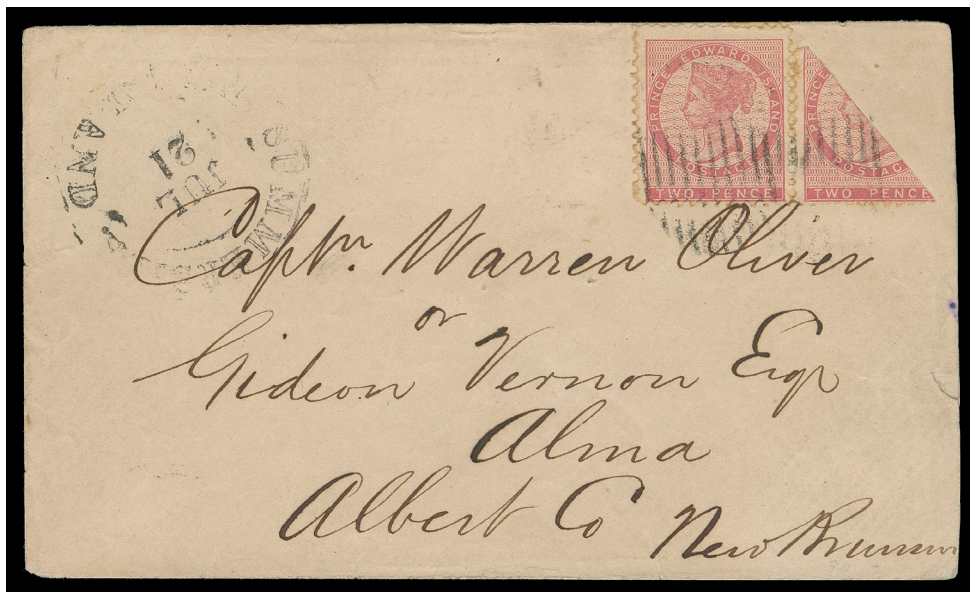 PRINCE EDWARD ISLAND
POSTAGE
TWO PENCE
PRINCE
POSTAG
TWO PENCE
JUL
21
SUMM
AND
Captn. Warren Oliver
or
Gideon Vernon Esqr
Alma
Albert Co New Brunsw